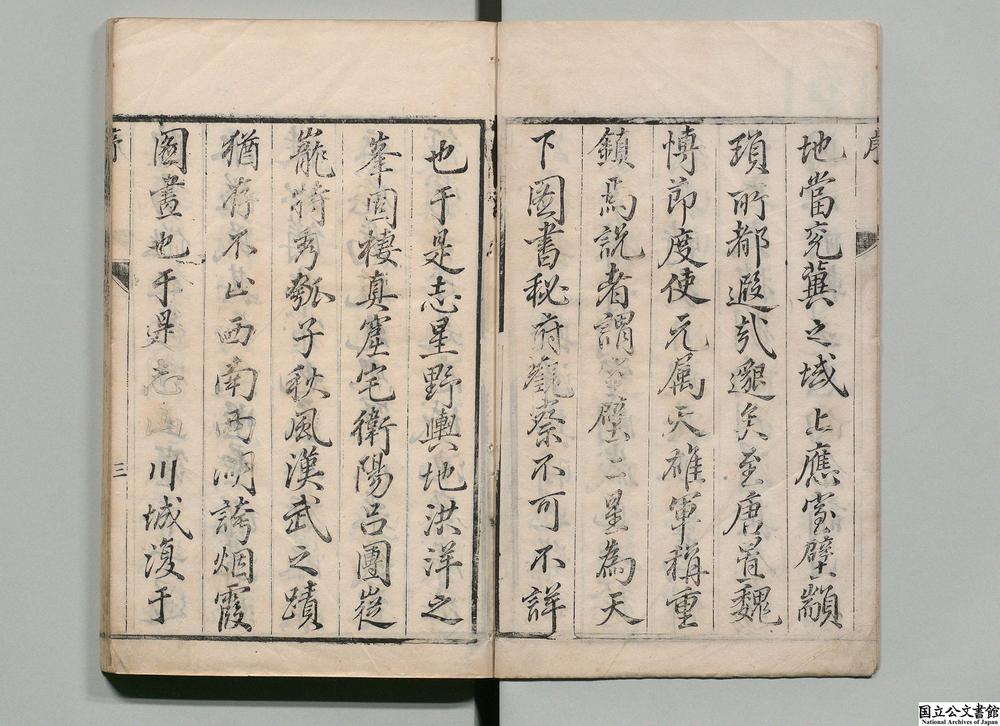 序
地當兖冀之域上應室壁顓
頊所都遐哉邈矣至唐置魏
博節度使元属天雄軍稱重
鎮焉説者謂室壁二星為天
下圖書秘府觀察不可不詳
也于是志星野輿地洪洋之
峯固棲真窟宅衛陽吕團嶷
巃特秀瓠子秋風漢武之蹟
猶存不出西南西湖誇烟霞
圖畫也于是志川城復于
序
三
国立公文書館
National Archives of Japan